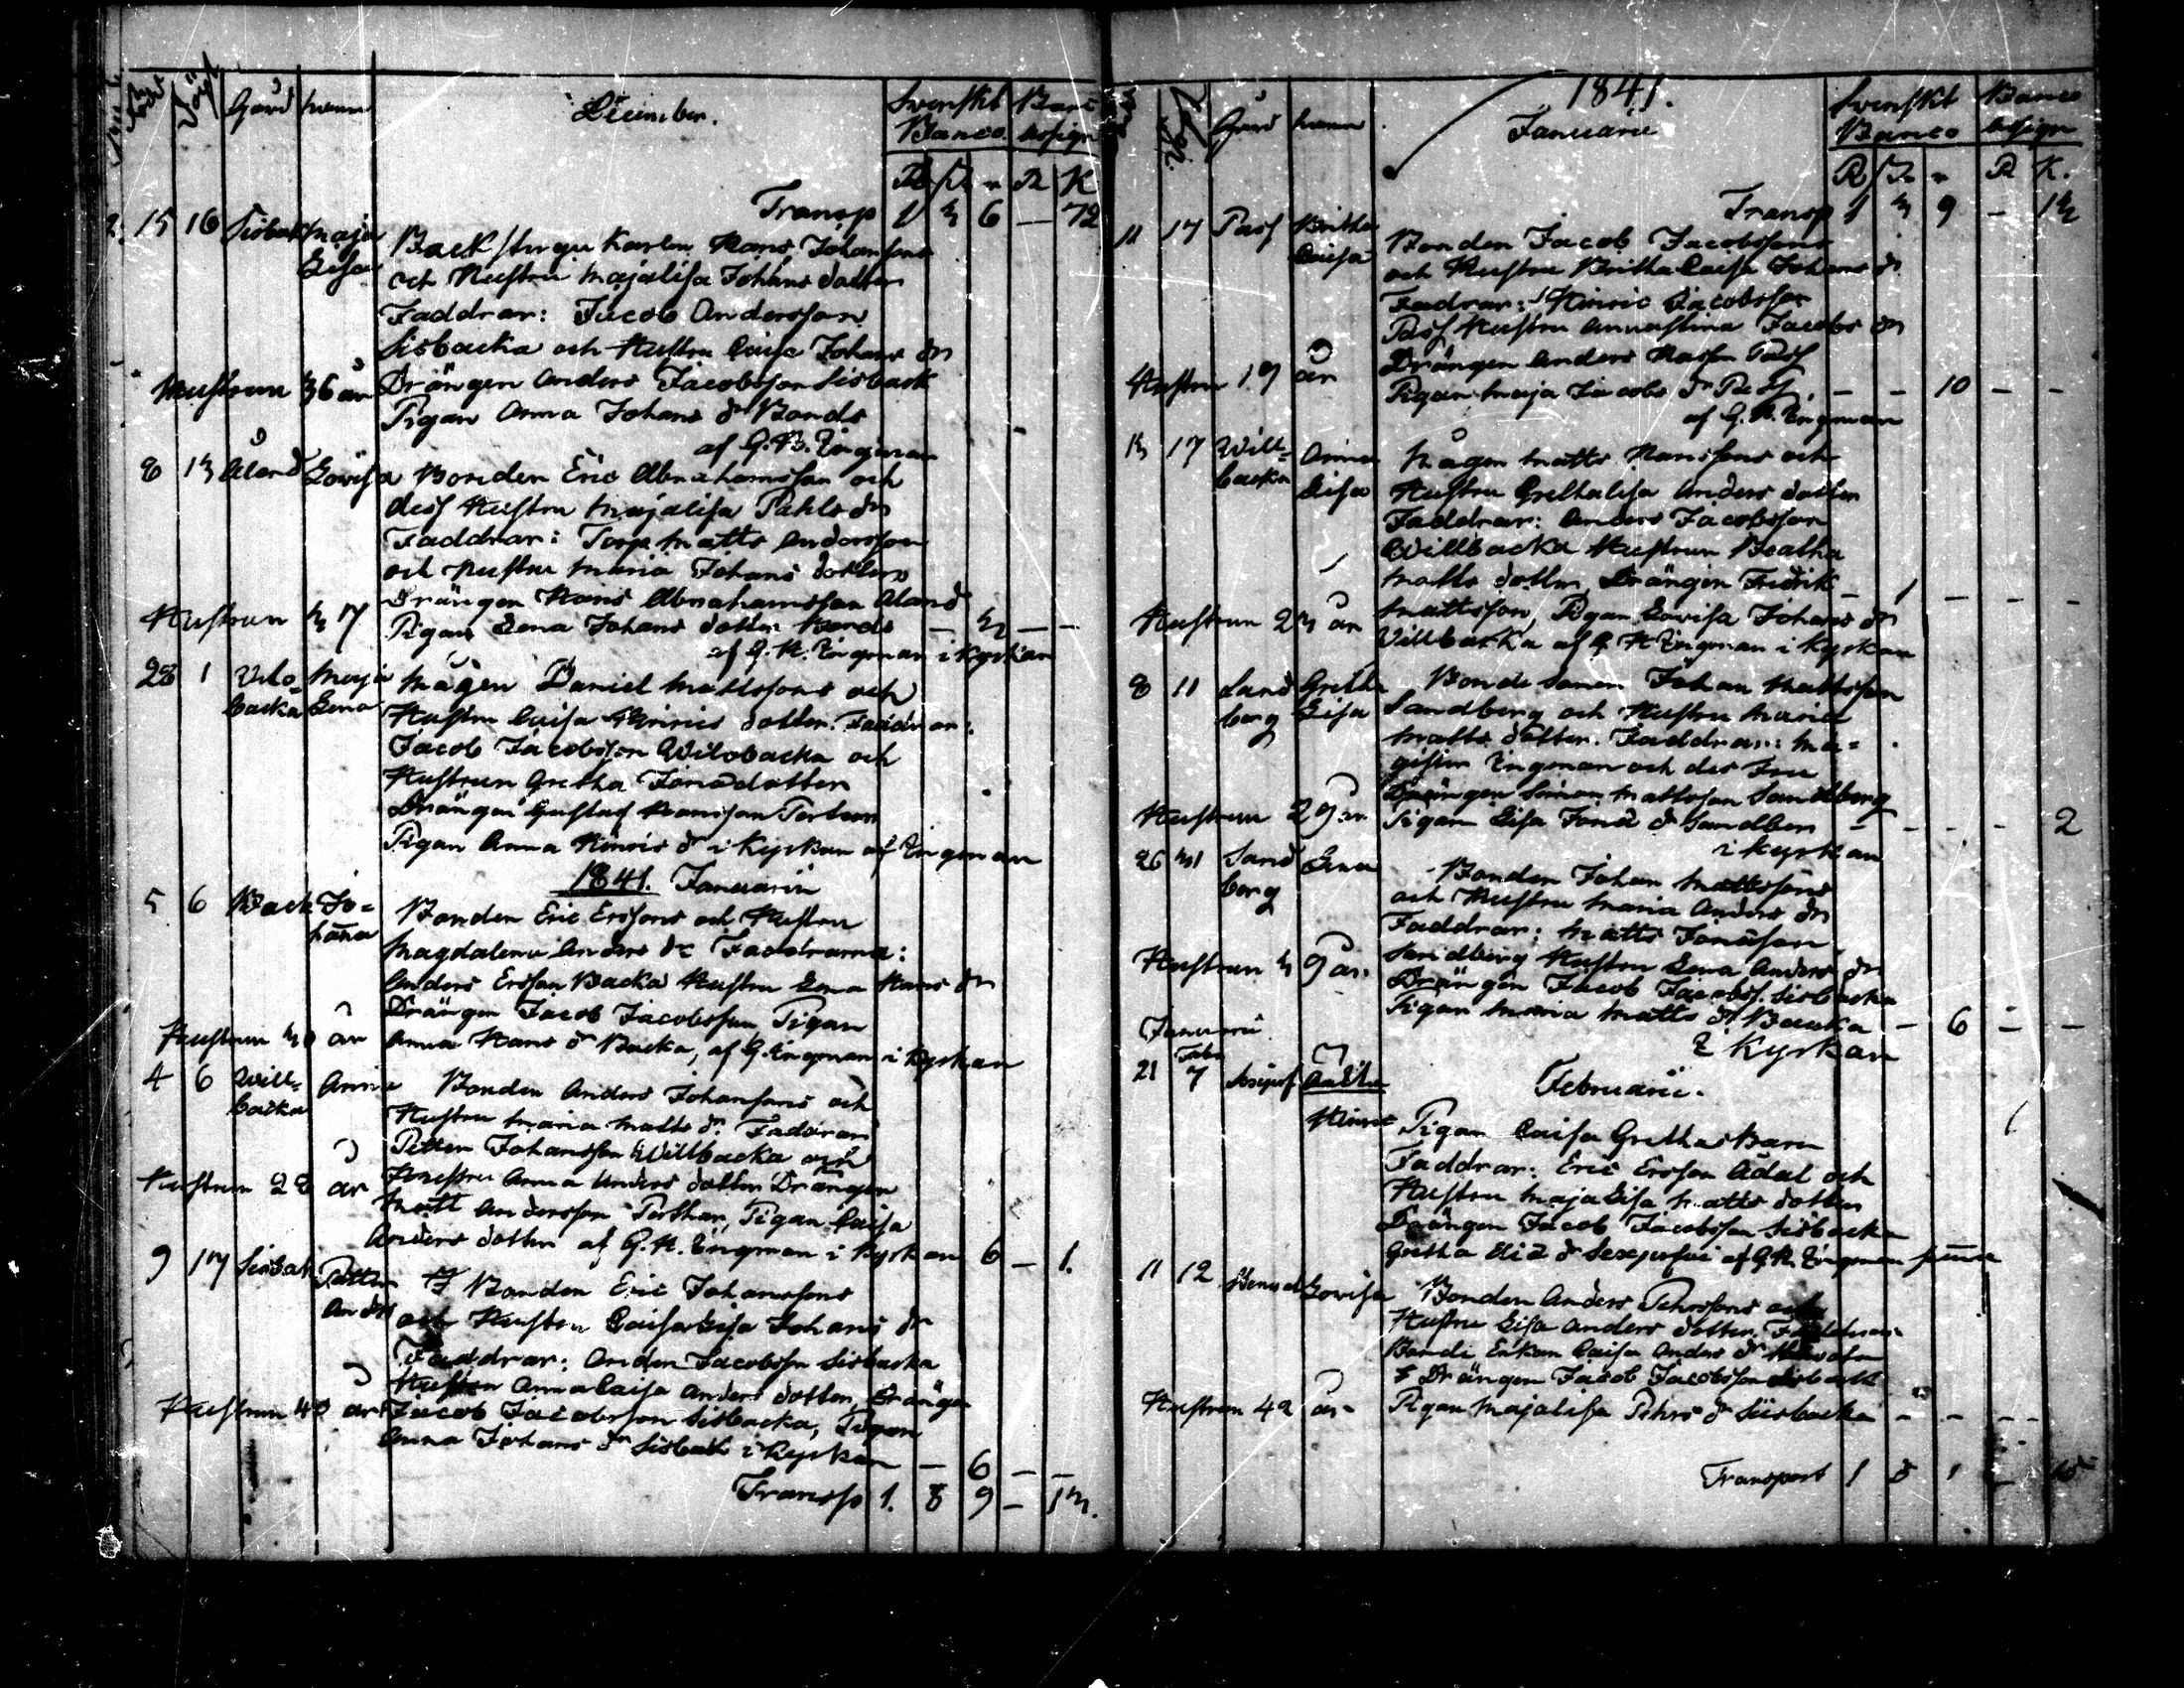 Född Döpt Gård namn December. Svenskt Banco Banc assign
R S r R K
Transp 1 3 6 — 72
15 16 Sisbak Maja Lisa
Backstugu Karlen Hans Johansons
och Hustru Majalisa Johans dotter
Faddrar: Jacob Andersson
Sisbacka och Hustru Caisa Johans dr
Hustrun 36 år Drängen Anders Jacobsson Sisback
Pigan Anna Johans dr Bonds
af G.H. Engman
8 13 Åland Lovisa Bonden Eric Abrahamsson och
dess Hustru Majalisa Pahls dr
Faddrar: Torp Matts Andersson
och Hustru Maria Johans dotter
Drängen Hans Abrahamsson Åland
Hustrun 37 Pigan Lena Johans dotter Bonds — 3 — —
af G.H. Engman i Kyrkan
28 1 Wilo= backa Maja Lena Mågen Daniel Mattssons och
Hustru Caisa Hinrics dotter. Faddrar:
Jacob Jacobsson Wilobacka och
Hustrun Gretha Jonædotter
Drängen Gustaf Hansson
Pigan Anna Hinrics dr i Kyrkan af Engman
1841. Januarii
5 6 Back Jo= hanna Bonden Eric Erssons och Hustru
Magdalena Anders dr Faddrarna:
Anders Ersson Backa Hustru Lena Hans dr
Drängen Jacob Jacobsson, Pigan
Hustrun 30 år Anna Hans dr Backa, af G. Engman i Kyrkan
4 6 Will= backa Anna Bonden Anders Johansons och
Hustru Maria Matts dr. Faddrar
Petter Johansson Willbacka och
Hustrun 28 år Hustru Anna Anders dotter Drängen
Matt Andersson, Pigan Caisa
Anders dotter af G.H. Engman i Kyrkan 6 — 1.
9 17 Sisbak Petter Andrs Bonden Eric Johanssons
och Hustru Caisa Lisa Johans dr
Faddrar: Anders Jacobsson Sisbacka
Hustrun Anna Caisa Anders dotter, Drängen
Hustrun 40 år Jacob Jacobsson Sisbacka, Pigan
Anna Johans dr Sisback i Kyrkan — 6 — —
Transp 1. 8 9 — 13.
Gård namn 1841. Svenskt Banco Banco assign
Januarii
R S r R K.
Transp 1 3 9 — 13
11 17 Pass Britha Caisa Bonden Jacob Jacobssons
och Hustru Britha Caisa Johans dr
Fadrar: Hinric Jacobsson
Pass Hustru Annastina Jacobs dr
Drängen Anders Hansson Pass
Hustru 19 år Pigan Maja Jacobs dr Pass. — — 10 — —
af G.H. Engman
13 17 Will= backa Anna Lisa Mågen Matts Hanssons och
Hustru Grethalisa Anders dotter
Faddrar: Anders Jacobsson
Willbacka Hustrun Beatha
Matts dotter, Drängen Fredrik — 1 — — —
Hustrun 23 år Mattsson, Pigan Lovisa Johans dr
Willbacka af G H Engman i Kyrkan
8 11 Sand berg Gretha Lisa Bonde Sonen Johan Mattsson
Sandberg och Hustru Maria
Matts dotter. Faddrar: Ma=
gister Engman och des Fru
Drängen Simon Mattsson Sandberg
Hustrun 29 år Pigan Lisa Jonæ dr Sandber — — — — 2
i Kyrkan
26 31 Sand berg Lena Bonden Johan Mattssons
och Hustru Maria Anders dr
Faddrar: Matts Jonæson
Sandberg Hustru Lena Anders dr
Hustrun 39 år. Drängen Jacob Jacobs. Sisbacka
Pigan Maria Matts dr Backa — 6 — —
i Kyrkan
Januarii Febr
21 7 Februarii.
Hinric Pigan Caisa Grethas Barn
Faddrar: Eric Ersson Ådal och
Hustru Maja Lisa Matts dotter
Drängen Jacob Jacobsson Sisbacka
Gretha af G.H. Engman
11 12 Lovisa Bonden Anders Pehrssons och
Hustru Lisa Anders dotter. Faddrar:
Bonde Enkan Caisa Anders dr
Drängen Jacob Jacobsson Sisback
Hustrun 42 år Pigan Majalisa Pehrs dr Sisbacka — — — —
Transport 1 5 1 — 15